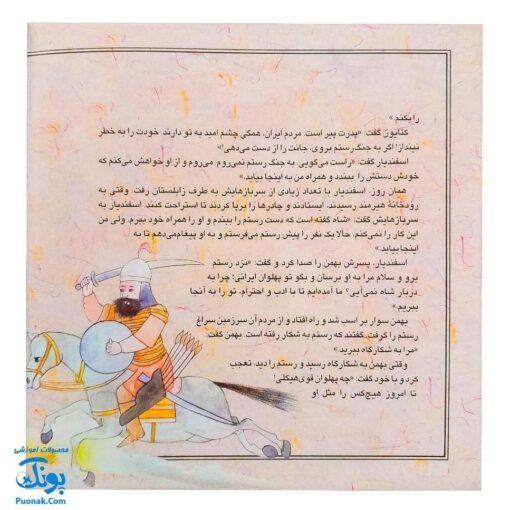 را بکنم.»
کتایون گفت: «پدرت پیر است. مردم ایران، همگی چشم امید به تو دارند. خودت را به خطر
نینداز! اگر به جنگ رستم بروی، جانت را از دست می‌دهی!»
اسفندیار گفت: «راست می‌گویی. به جنگ رستم نمی‌روم. می‌روم و از او خواهش می‌کنم که
خودش دستش را ببندد و همراه من به اینجا بیاید.»
همان روز، اسفندیار با تعداد زیادی از سربازهایش به طرف زابلستان رفت. وقتی به
رودخانهٔ هیرمند رسیدند، ایستادند و چادرها را برپا کردند تا استراحت کنند. اسفندیار به
سربازهایش گفت: «شاه گفته است که دست رستم را ببندم و او را همراه خود ببرم. ولی من
این کار را نمی‌کنم. حالا یک نفر را پیش رستم می‌فرستم و به او پیغام می‌دهم تا به
اینجا بیاید.»
اسفندیار، پسرش بهمن را صدا کرد و گفت: «نزد رستم
برو و سلام مرا به او برسان و بگو تو پهلوان ایرانی؛ چرا به
دربار شاه نمی‌آیی؟ ما آمده‌ایم تا با ادب و احترام، تو را به آنجا
ببریم.»
بهمن سوار بر اسب شد و راه افتاد و از مردم آن سرزمین سراغ
رستم را گرفت. گفتند که رستم به شکار رفته است. بهمن گفت:
«مرا به شکارگاه ببرید.»
وقتی بهمن به شکارگاه رسید و رستم را دید، تعجب
کرد و با خود گفت: «چه پهلوان قوی‌هیکلی!
تا امروز هیچ‌کس را مثل او
محصولات آموزشی
پونک
Puonak.Com